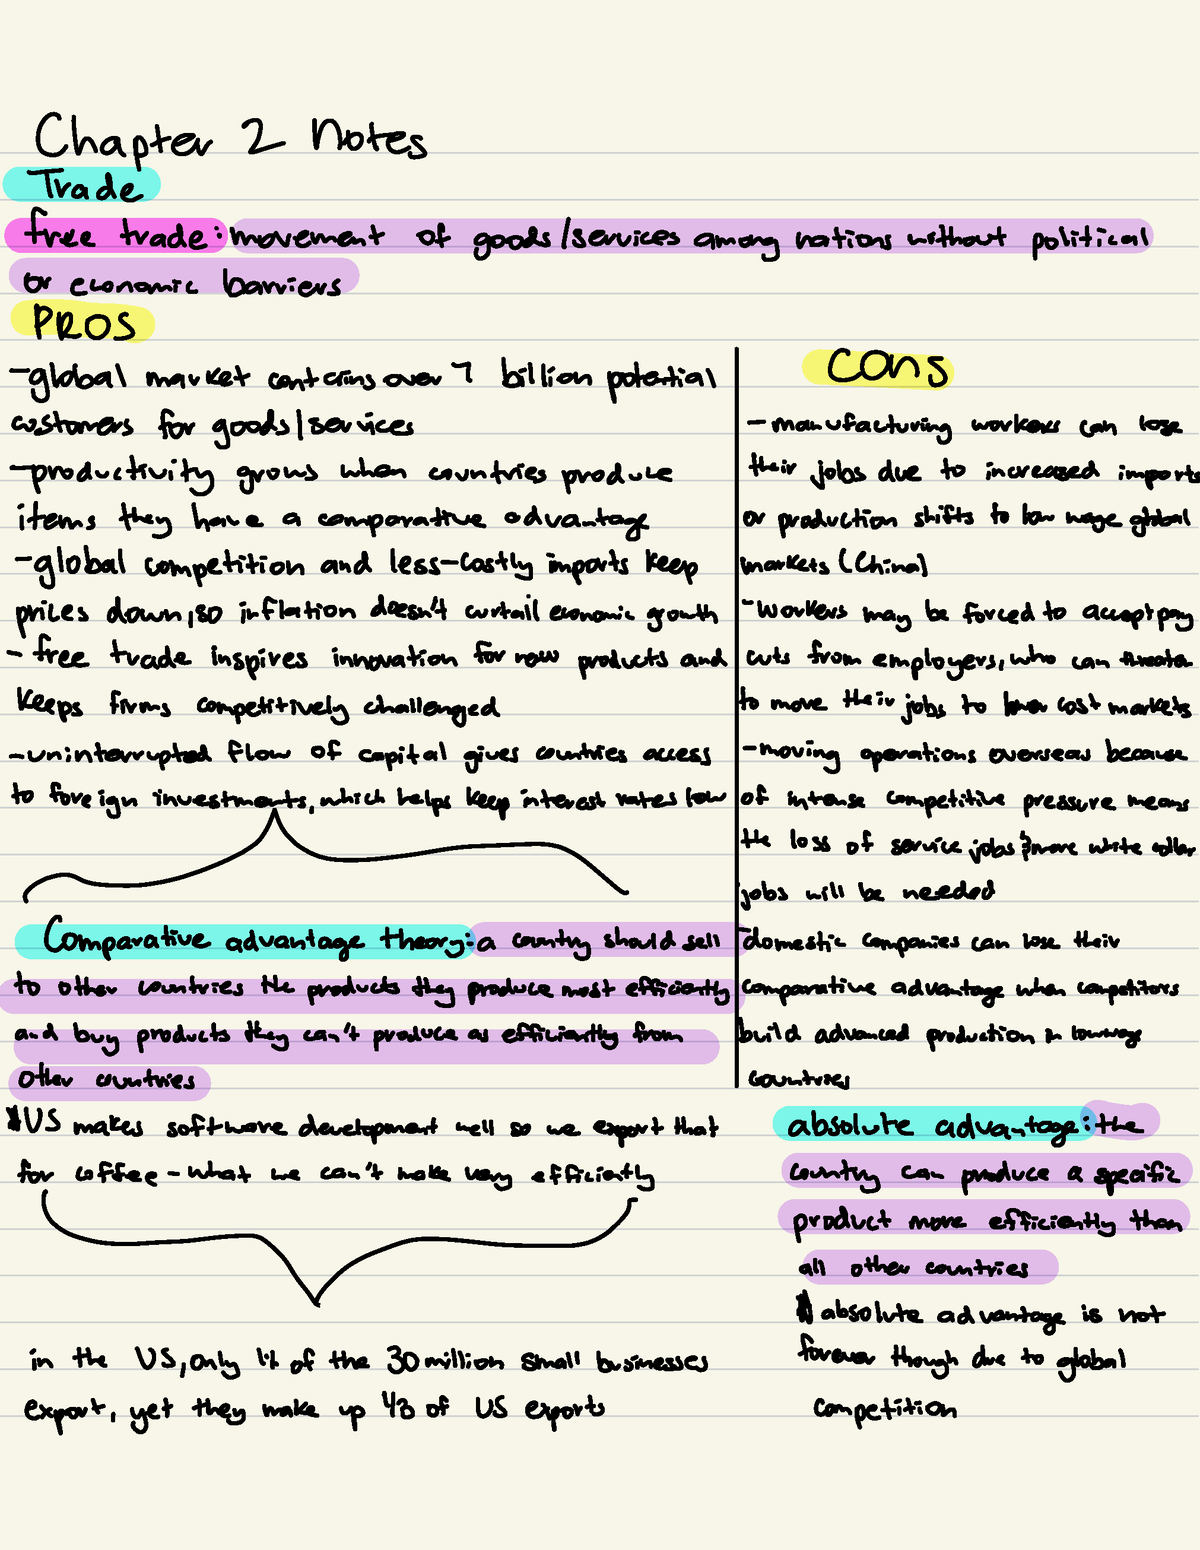 Chapter 2 Notes
Trade
free trade: movement of goods/services among nations without political
or economic barriers
PROS
-global market contains over 7 billion potential
customers for goods/services
-productivity grows when countries produce
items they have a comparative advantage
-global competition and less-costly imports keep
prices down, so inflation doesn't curtail economic growth
- free trade inspires innovation for new products and
keeps firms competitively challenged
-uninterrupted flow of capital gives countries access
to foreign investments, which helps keep interest rates low
Comparative advantage theory: a country should sell
to other countries the products they produce most efficiently
and buy products they can't produce as efficiently from
other countries
US makes software development well so we export that
for coffee - what we can't make very efficiently
in the US, only 1% of the 30 million small businesses
export, yet they make up 1/3 of US exports
Cons
- manufacturing workers can lose
their jobs due to increased imports
or production shifts to low wage global
markets (China)
-workers may be forced to accept pay
cuts from employers, who can threaten
to move their jobs to lower cost markets
-moving operations overseas because
of intense competitive pressure means
the loss of service jobs & more white collar
jobs will be needed
-domestic companies can lose their
comparative advantage when competitors
build advanced production in low wage
countries
absolute advantage: the
country can produce a specific
product more efficiently than
all other countries
absolute advantage is not
forever though due to global
competition